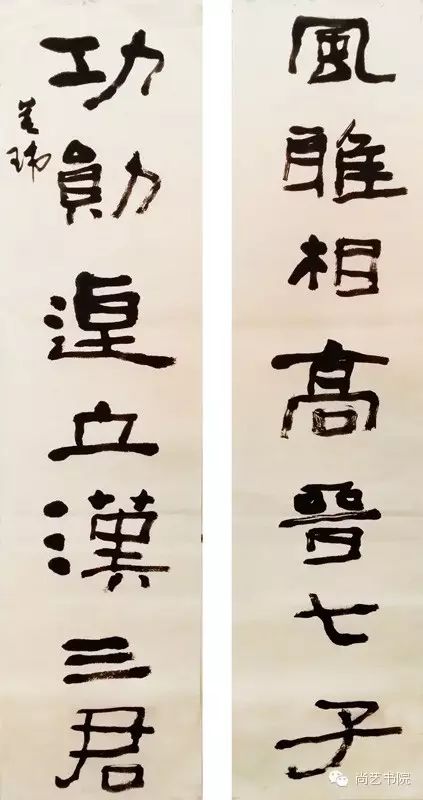 風雅相高晉七子
功勛遑立漢三君
尚艺书院